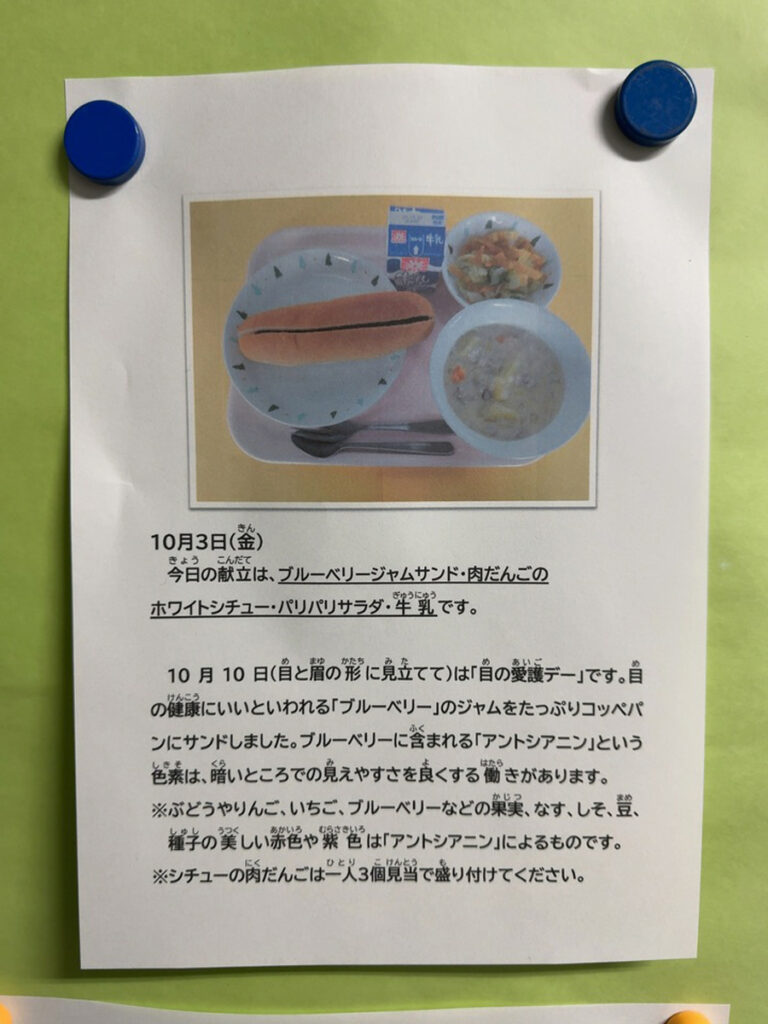 牛乳
10月3日(金)
今日の献立は、ブルーベリージャムサンド・肉だんごの
ホワイトシチュー・パリパリサラダ・牛乳です。
10月10日(目と眉の形に見立てて)は「目の愛護デー」です。目
の健康にいいといわれる「ブルーベリー」のジャムをたっぷりコッペパ
ンにサンドしました。ブルーベリーに含まれる「アントシアニン」という
色素は、暗いところでの見えやすさを良くする働きがあります。
※ぶどうやりんご、いちご、ブルーベリーなどの果実、なす、しそ、豆、
種子の美しい赤色や紫色は「アントシアニン」によるものです。
※シチューの肉だんごは一人3個見当で盛り付けてください。